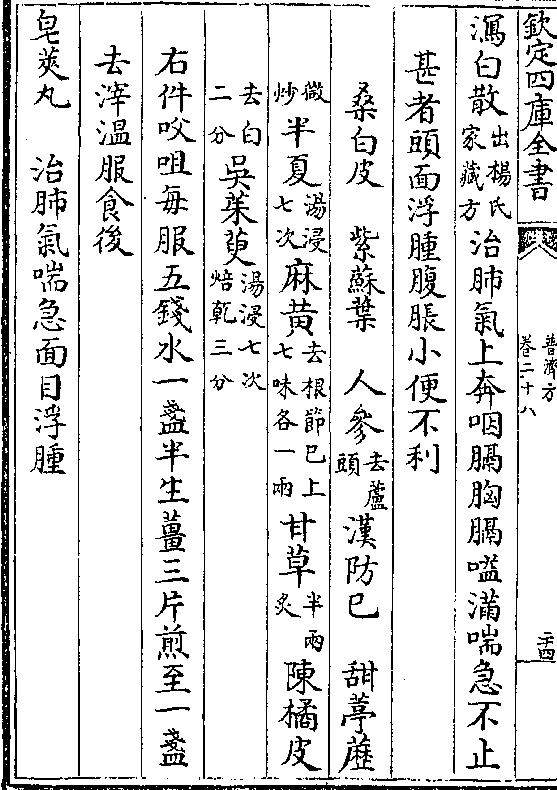 欽定四庫全書
普濟方
卷二十八
二十四
瀉白散出楊氏家藏方治肺氣上奔咽膈胸膈嗌滿喘急不止
甚者頭面浮腫腹脹小便不利
桑白皮 紫蘇葉 人參去蘆頭漢防已 甜葶藶
微炒半夏湯浸七次麻黄去根節已上七味各一兩甘草半兩炙陳橘皮
去白二分吳茱萸湯浸七次焙乾三分
右件㕮咀每服五錢水一盞半生薑三片煎至一盞
去滓温服食後
皂莢丸 治肺氣喘急面目浮腫